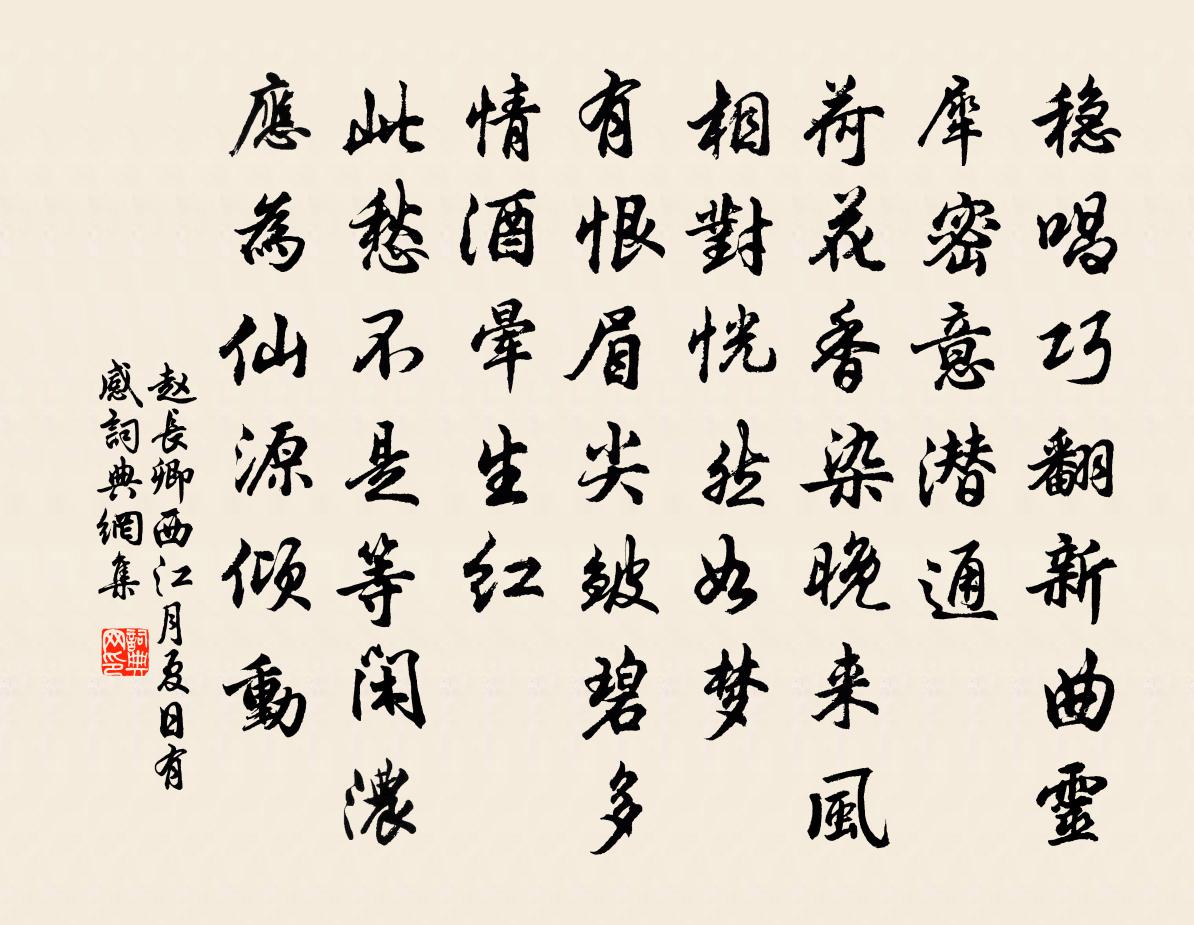 穏唱巧翻新曲靈
犀密意潜通
荷花香染晚来風
相對恍然如梦
有恨眉尖皱碧多
情酒暈生红
此愁不是等閑濃
應為仙源倾動
赵長卿西江月夏日有
感詞典網集
詞典
网印